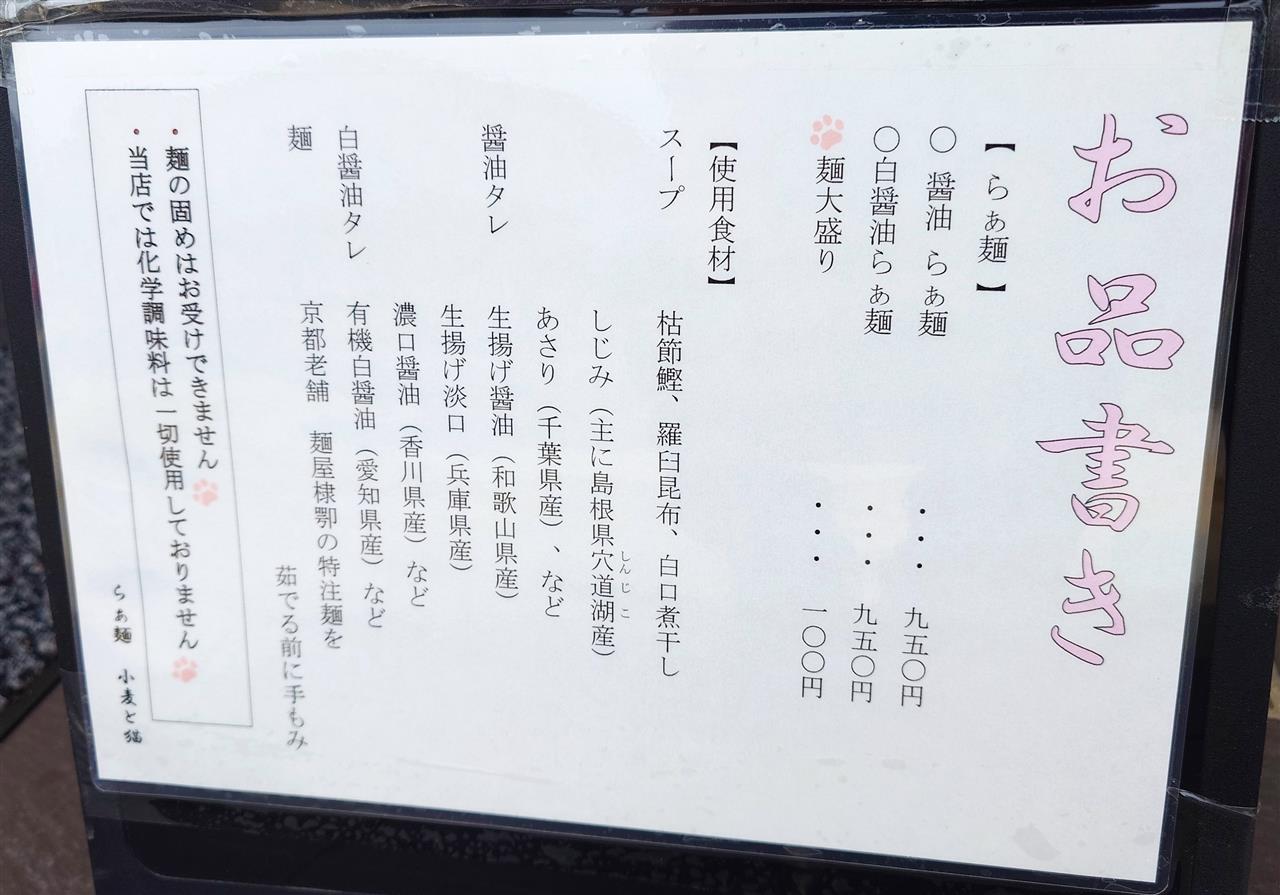 お品書き
【らぁ麺】
〇 醤油 らぁ麺 ・・・ 九五〇円
〇白醤油らぁ麺 ・・・ 九五〇円
麺大盛り ・・・ 一〇〇円
【使用食材】
スープ 枯節鰹、羅臼昆布、白口煮干し
しじみ（主に島根県穴道湖産）
しんじこ
あさり（千葉県産）、など
醤油タレ 生揚げ醤油（和歌山県産）
生揚げ淡口（兵庫県産）
濃口醤油（香川県産）など
白醤油タレ 有機白醤油（愛知県産）など
麺 京都老舗 麺屋棣鄂の特注麺を
茹でる前に手もみ
・麺の固めはお受けできません
・当店では化学調味料は一切使用しておりません
らぁ麺 小麦と猫